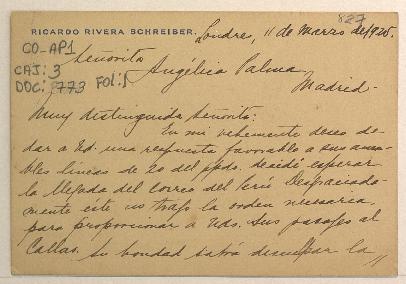 827
RICARDO RIVERA SCHREIBER.
Londres, 11 de Marzo de 1920.
CO-AP1
CAJ: 3
DOC: 8773 FOL: 1
Señorita
Angélica Palma.
Madrid.
Muy distinguida señorita:
En mi vehemente deseo de
dar a Ud. una respuesta favorable a sus ama-
bles líneas de 20 del ppdo. decidí esperar
la llegada del correo del Perú. Desgraciada-
mente este no trajo la orden necesaria
para proporcionar a Uds. sus pasajes al
Callao. Su bondad sabrá disculpar la